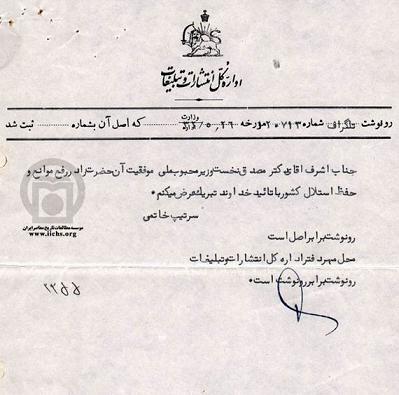 اداره کل انتشارات و تبلیغات
رونوشت تلگراف شماره ۲۰۷۹۳ مورخه ۳۲/۵/۲۶ وزارت که اصل آن بشماره ثبت شد
جناب اشرف اقای دکتر مصدق نخست وزیر محبوب ملی موفقیت آن حضرت را در رفع موانع و
حفظ استلال کشور با تائید خداوند تبریک عرض میکنم •
سرتیپ خاتمی
رونوشت برابر اصل است
محل مهر دفتر اداره کل انتشارات و تبلیغات
رونوشت برابر رونوشت است •
موسسه مطالعات تاریخ معاصر ایران
www.iichs.org